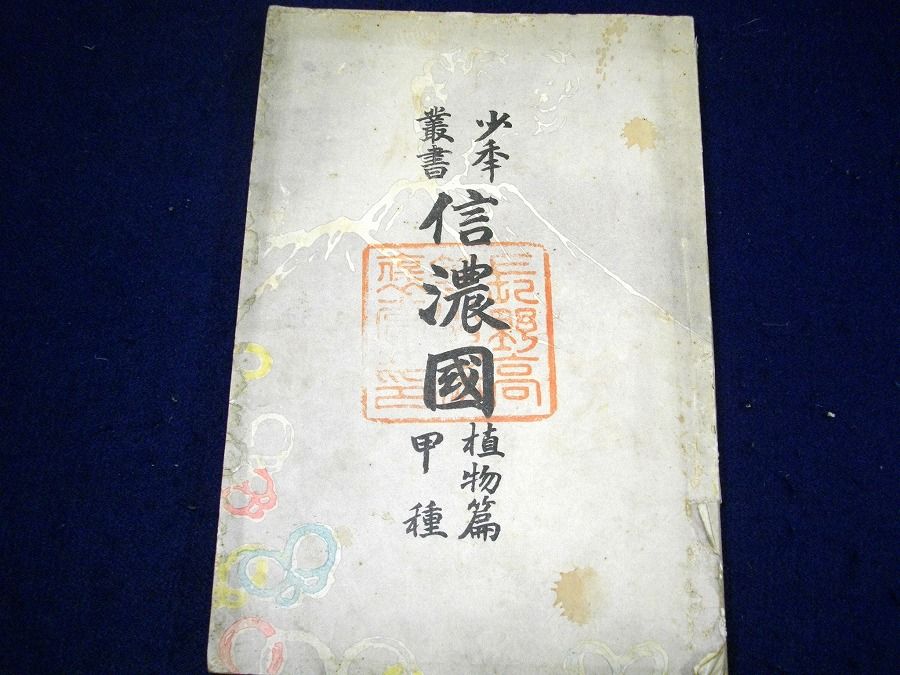 少年
叢書
信濃國
植物篇
甲種
長野高